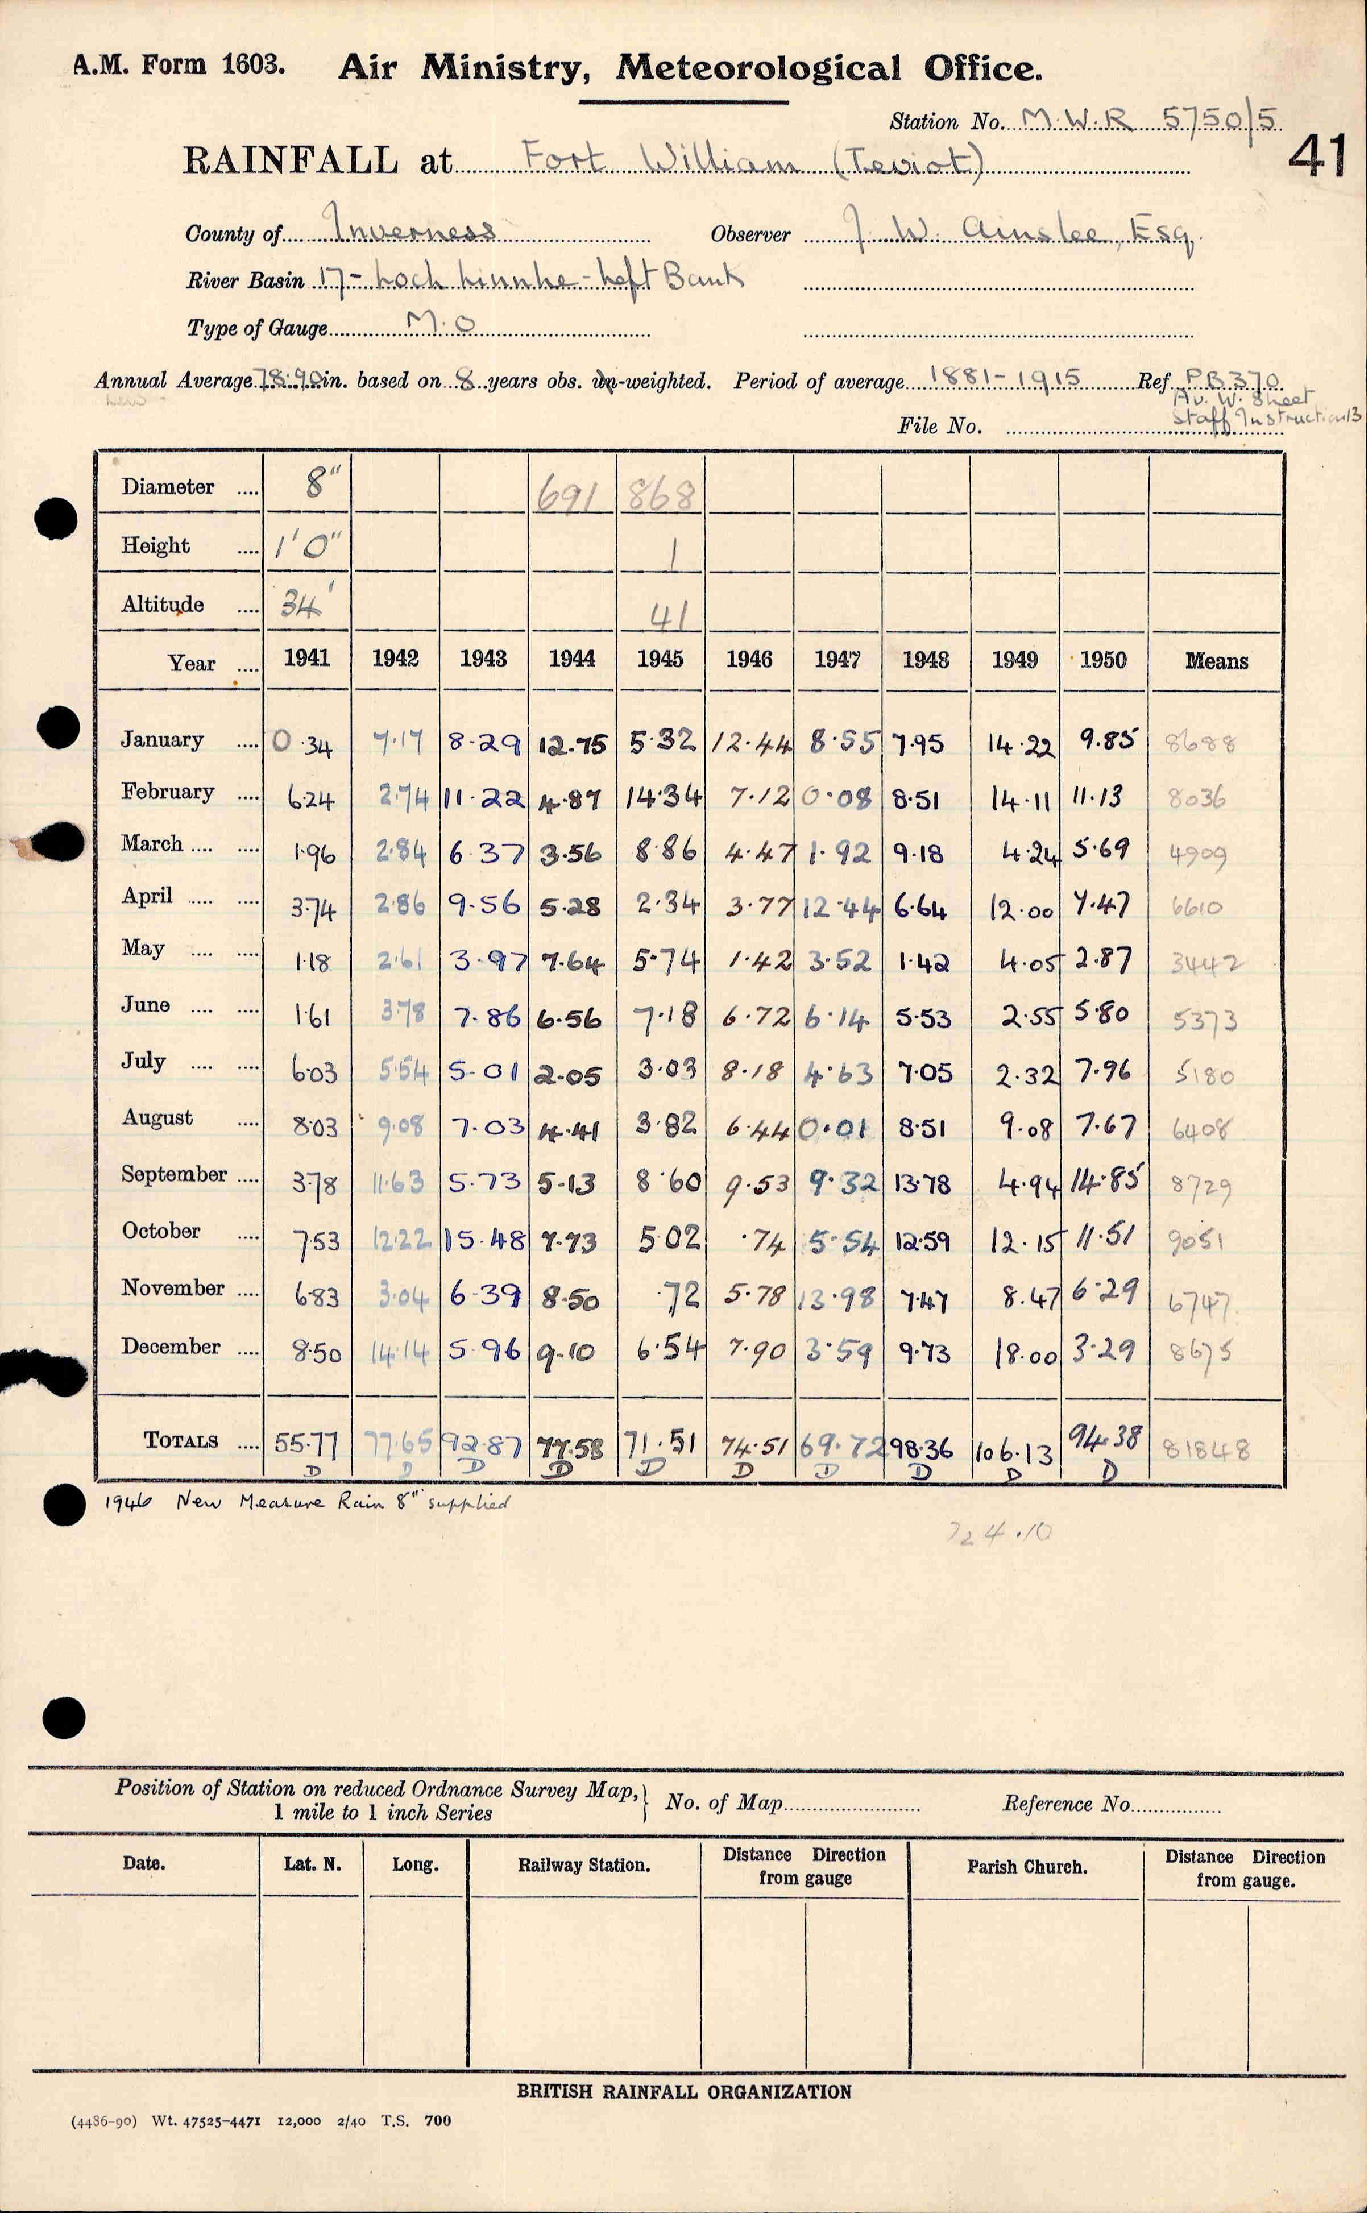 A.M. Form 1603. Air Ministry, Meteorological Office.
Station No. M.W.R 5750/5
41
RAINFALL at Fort William (Teviot)
County of Inverness Observer J. W. Ainslee, Esq.
River Basin 17 - Loch Linnhe - Left Bank
Type of Gauge M.O
Annual Average 78.90 in. based on 8 years obs. un-weighted. Period of average 1881-1915 Ref. PB370
Av. W. Sheet
File No. Staff Instruction 13
Diameter .... 8" 691 868
Height .... 1'0" 1
Altitude .... 34' 41
Year .... 1941 1942 1943 1944 1945 1946 1947 1948 1949 1950 Means
January .... 0.34 7.17 8.29 12.75 5.32 12.44 8.55 7.95 14.22 9.85 8688
February .... 6.24 2.74 11.22 4.87 14.34 7.12 0.08 8.51 14.11 11.13 8036
March .... .... 1.96 2.84 6.37 3.56 8.86 4.47 1.92 9.18 4.24 5.69 4909
April .... .... 3.74 2.86 9.56 5.28 2.34 3.77 12.44 6.64 12.00 7.47 6610
May .... .... 1.18 2.61 3.97 7.64 5.74 1.42 3.52 1.42 4.05 2.87 3442
June .... .... 1.61 3.78 7.86 6.56 7.18 6.72 6.14 5.53 2.55 5.80 5373
July .... .... 6.03 5.54 5.01 2.05 3.03 8.18 4.63 7.05 2.32 7.96 5180
August .... 8.03 9.08 7.03 4.41 3.82 6.44 0.01 8.51 9.08 7.67 6408
September .... 3.78 11.63 5.73 5.13 8.60 9.53 9.32 13.78 4.94 14.85 8729
October .... 7.53 12.22 15.48 7.73 5.02 .74 5.54 12.59 12.15 11.51 9051
November .... 6.83 3.04 6.39 8.50 .72 5.78 13.98 7.47 8.47 6.29 6747
December .... 8.50 14.14 5.96 9.10 6.54 7.90 3.59 9.73 18.00 3.29 8675
TOTALS .... 55.77 77.65 92.87 77.58 71.51 74.51 69.72 98.36 106.13 94.38 81848
D D D D D D D D D D
1946 New Measure Rain 8" supplied
724.10
Position of Station on reduced Ordnance Survey Map, 1 mile to 1 inch Series } No. of Map Reference No.
Date. Lat. N. Long. Railway Station. Distance Direction from gauge Parish Church. Distance Direction from gauge.
BRITISH RAINFALL ORGANIZATION
(4486-90) Wt. 47525-4471 12,000 2/40 T.S. 700